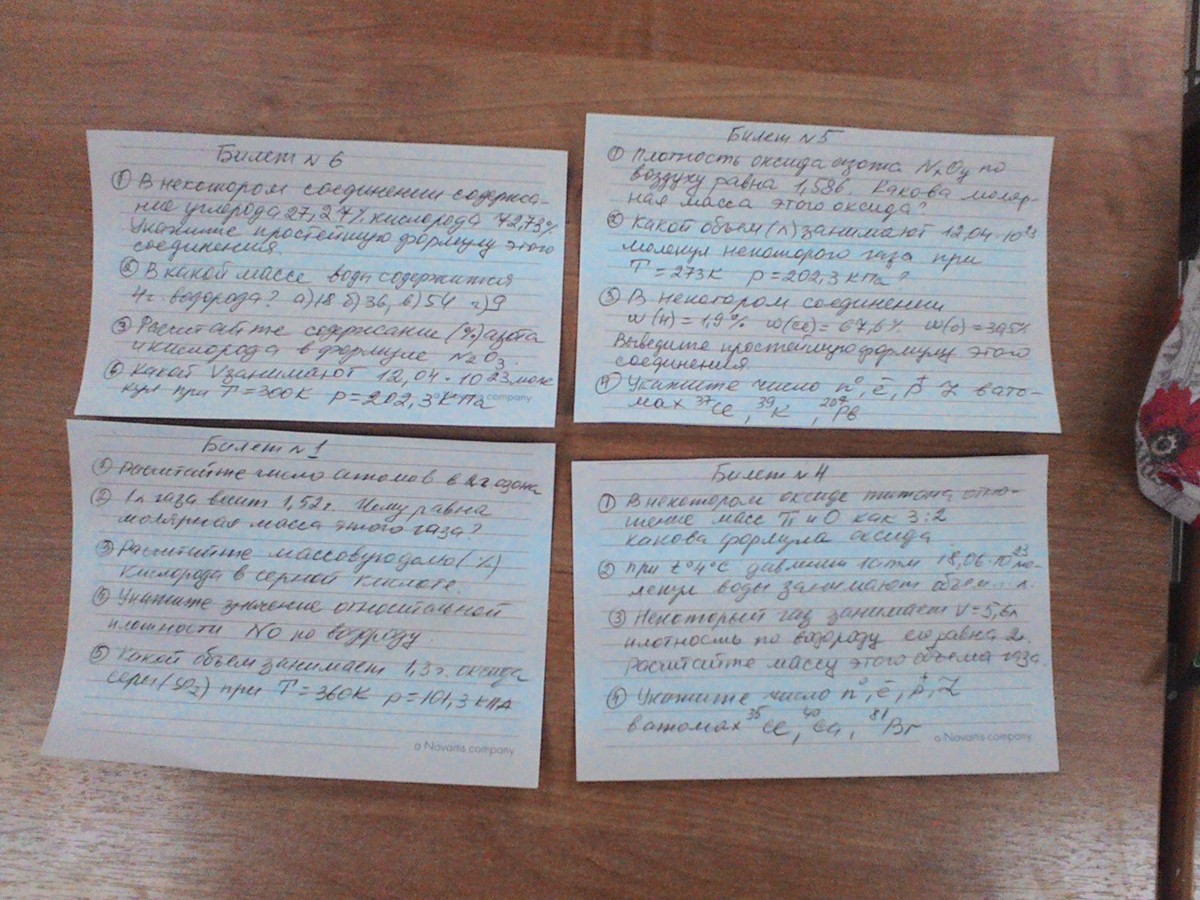 Билет N 6
① В некотором соединении содержа-
ние углерода 27,27% кислорода 72,73%
Укажите простейшую формулу этого
соединения.
② В какой массе воды содержится
4г водорода? а)18 б)36, в)54 г)9
③ Расчитайте содержание (%) азота
и кислорода в формуле N2O3.
Какой V занимают 12,04 · 10 23 моле
кул при T = 300K p = 202,3 кПа
company
Билет N 5
① Плотность оксида азота NxOy по
воздуху равна 1,586. Какова моляр-
ная масса этого оксида?
② Какой объем (л) занимают 12,04 · 10 23
молекул некоторого газа при
T = 273K p = 202,3 кПа?
③ В некотором соединении
w(н) = 1,9% w(Cl) = 67,6% w(o) = 30,5%
Выведите простейшую формулу этого
соединения
④ Укажите число n°, ē, p+ Z в ато-
мах 37Cl, 39K, Pb
Билет N 1
① Расчитайте число атомов в озона
② 1л газа весит 1,52г. Чему равна
молярная масса этого газа?
③ Расчитайте массовую долю (%)
кислорода в серной кислоте.
Укажите значение относительной
плотности NO по водороду.
⑤ Какой объем занимает 1,3 г. оксида
серы (SO2) при T = 360K p = 101,3 кПа
a Novartis company
Билет N 4
① В некотором оксиде титана отно-
шение масс Ti и O как 3:2
какова формула оксида
② при t° 4°C давлении 1атм 18,06 · 10 23 мо-
лекул воды занимают объем л.
③ Некоторый газ занимает V = 5,6л
плотность по водороду его равна
Расчитайте массу этого объема газа.
④ Укажите число n°, ē, p+, Z
в атомах 35Cl, 40Ca, 81Br
a Novartis company